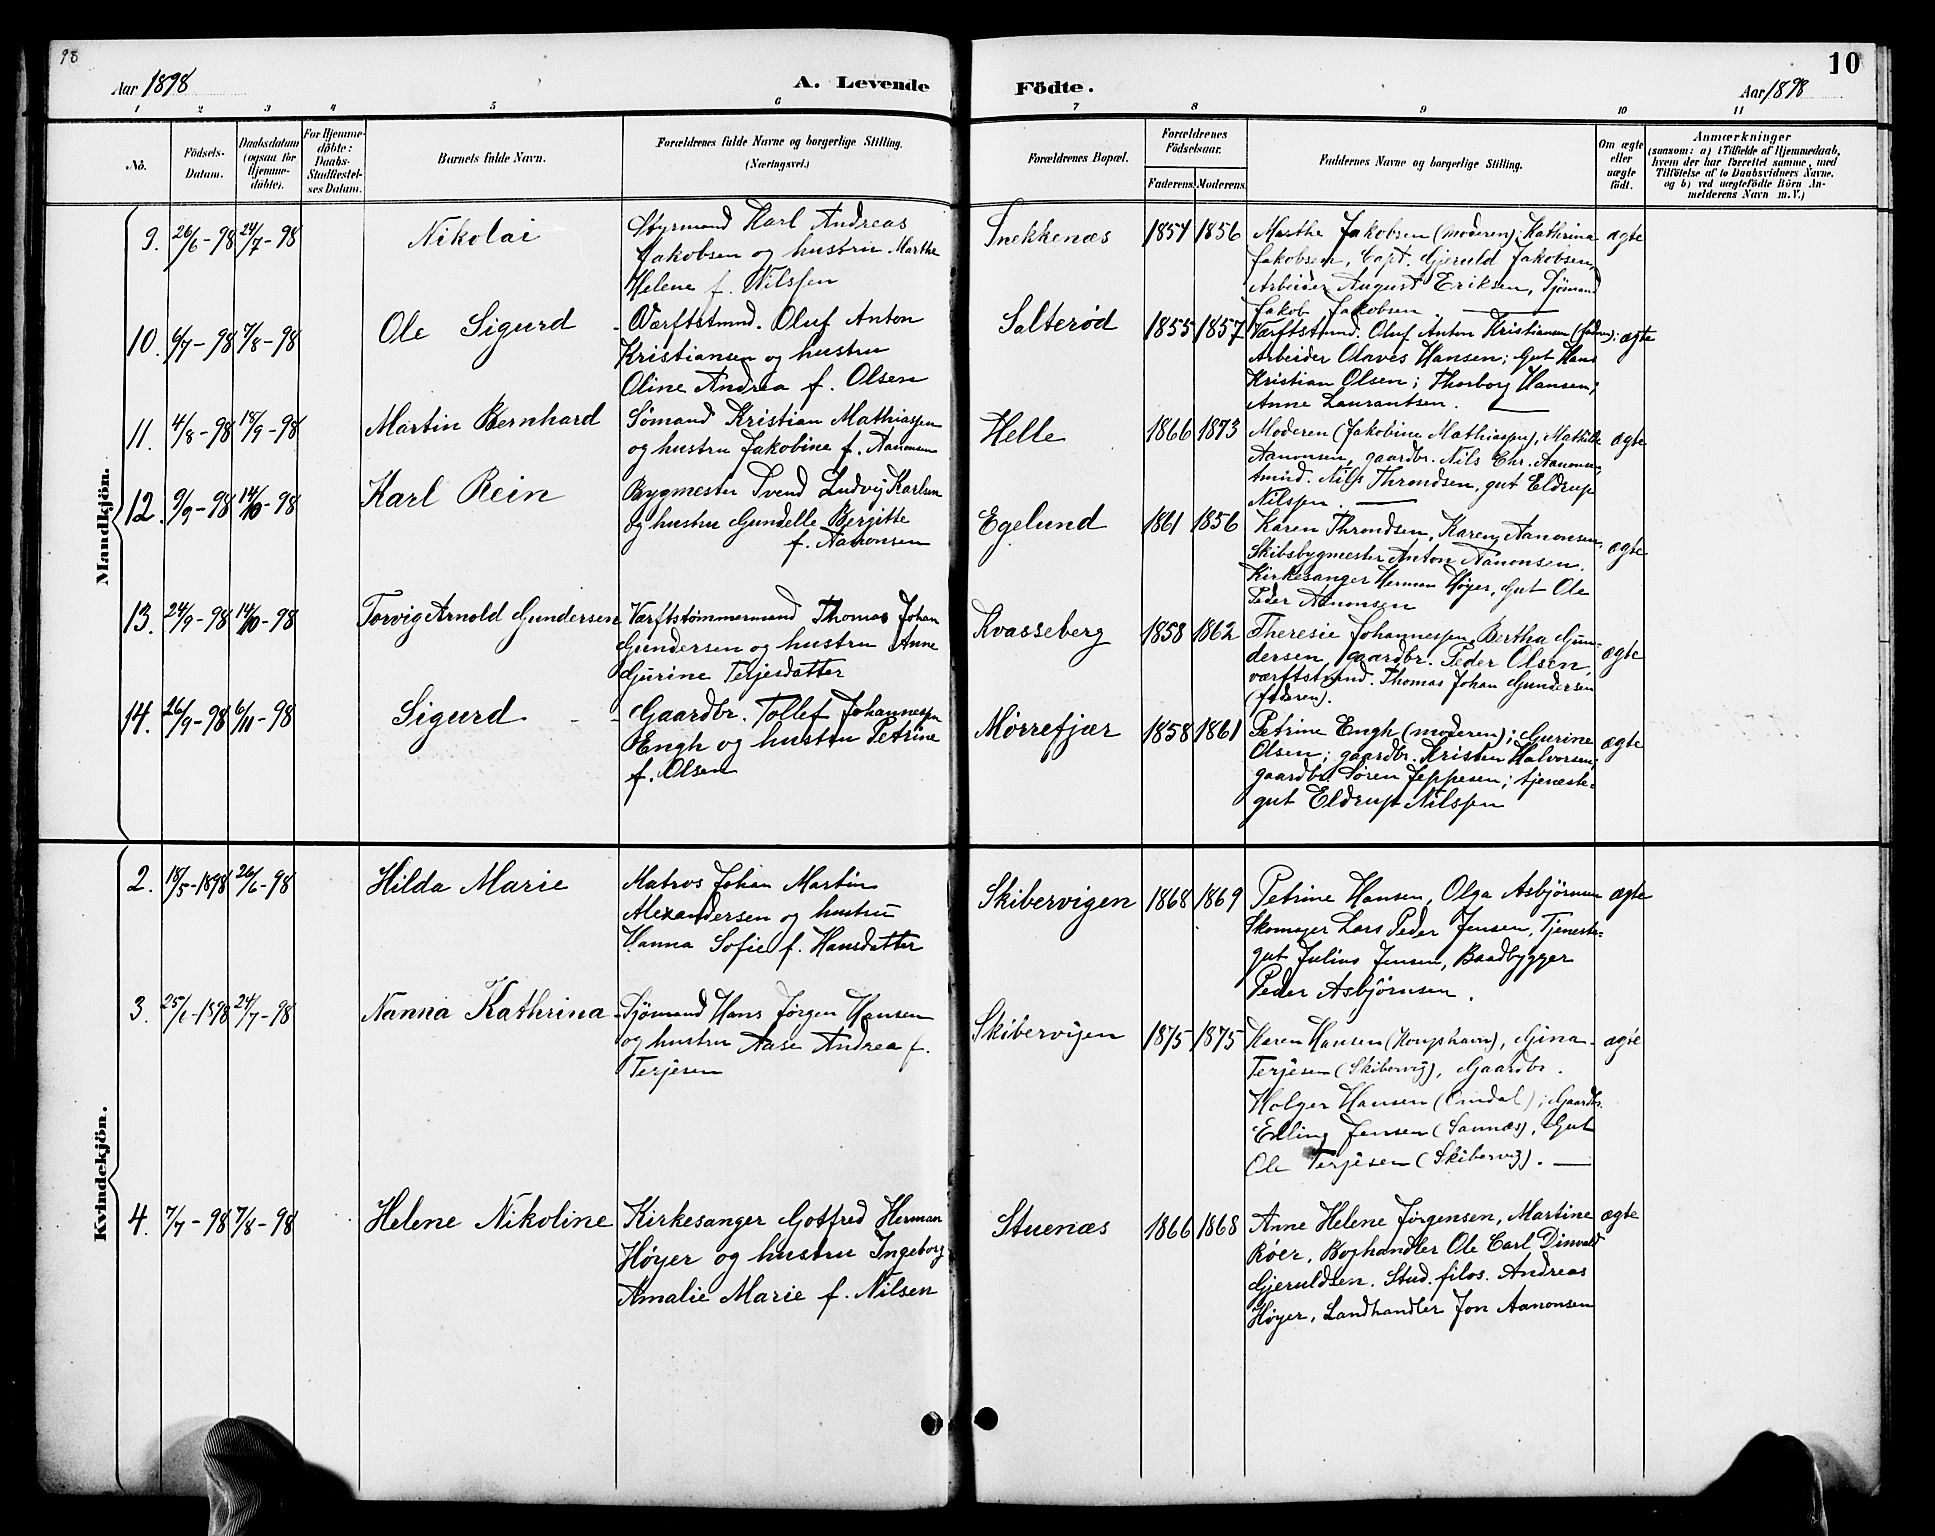 98
Aar 1898
A. Levende
Födte.
Aar 1898
10
1 2 3 4 5 6 7 8 9 10 11
No.
Födsels-
Datum.
Daabsdatum
(ogsaa for
Hjemme-
döbte).
For Hjemme-
döbte:
Daabs-
Stadfæstel-
ses Datum.
Barnets fulde Navn.
Forældrenes fulde Navne og borgerlige Stilling.
(Næringsvei.)
Forældrenes Bopæl.
Forældrenes
Födselsaar.
Faderens. Moderens.
Faddernes Navne og borgerlige Stilling.
Om ægte
eller
uægte
født.
Anmærkninger
(saasom: a) i Tilfælde af Hjemmedaab,
hvem der har forrettet samme, med
Tilföielse af to Daabsvidners Navne.
og b) ved uægtefödte Börn An-
melderens Navn m. V.)
Mandkjön.
9. 26/6-98 24/7-98 Nikolai
Styrmand Karl Andreas
Jakobsen og hustru Marthe
Helene f. Nilssen
Snekkenæs 1854 1856
Marthe Jakobsen (moderen); Kathrina
Jakobsen, Capt. Gjeruld Jakobsen,
Arbeider August Eriksen, Sjömand
Jakob Jakobsen
ægte
10. 6/7-98 7/8-98 Ole Sigurd
Værftstmnd. Oluf Anton
Kristiansen og hustru
Oline Andrea f. Olsen
Salterød 1855 1857
Værftstmd. Oluf Anton Kristiansen (faderen);
Arbeider Olaves Hansen; Gut Hans
Kristian Olsen; Thorborg Hansen;
Anne Laurantsen.
ægte
11. 4/8-98 18/9-98 Martin Bernhard
Sømand Kristian Mathiassen
og hustru Jakobine f. Aanonsen
Helle 1866 1873
Moderen (Jakobine Mathiassen), Mathilde
Aanonsen, gaardbr. Nils Chr. Aanonsen,
tmnd. Nils Throndsen, gut Eldrup
Nilssen.
ægte
12. 9/9-98 14/10-98 Karl Rein
Bygmester Svend Ludvig Karlsen
og hustru Gundelle Bergitte
f. Aanonsen
Egelund 1861 1856
Karen Throndsen, Karen Aanonsen,
Skibsbygmester Anton Aanonsen,
Kirkesanger Herman Høyer, Gut Ole
Peder Aanonsen
ægte
13. 24/9-98 14/10-98 Torvig Arnold Gundersen
Værftstømmermand Thomas Johan
Gundersen og hustru Anne
Gurine Terjesdatter
Kvasseberg 1858 1862
Theresie Johannessen, Bertha Gun-
dersen, gaardbr. Peder Olsen,
værftstmnd. Thomas Johan Gundersen
(faderen).
ægte
14. 26/9-98 6/11-98 Sigurd
Gaardbr. Tollef Johannessen
Engh og hustru Petrine
f. Olsen
Mørrefjær 1858 1861
Petrine Engh (moderen); Gurine
Olsen; gaardbr. Kristen Halvorsen;
gaardbr. Søren Jeppesen; tjeneste-
gut Eldrup Nilssen
ægte
Kvindekjön.
2. 18/5-1898 26/6-98 Hilda Marie
Matros Johan Martin
Alexandersen og hustru
Hanna Sofie f. Hansdatter
Skibervigen 1868 1869
Petrine Hansen, Olga Asbjørnsen
Skomager Lars Peder Jensen, Tjeneste-
gut Julius Jensen, Baadbygger
Peder Asbjørnsen.
ægte
3. 25/6-1898 24/7-98 Nanna Kathrina
Sjømand Hans Jørgen Hansen
og hustru Aase Andrea f.
Terjesen
Skibervigen 1875 1875
Karen Hansen (Kongshavn), Gina
Terjesen (Skibervig), Gaardbr.
Holger Hansen (Omdal); Gaardbr.
Erling Jensen (Sannæs), Gut
Ole Terjesen (Skibervig).
ægte
4. 7/7-98 7/8-98 Helene Nikoline
Kirkesanger Gotfred Herman
Høyer og hustru Ingeborg
Amalie Marie f. Nilsen
Stuenæs 1866 1868
Anne Helene Jørgensen, Martine
Röer, Boghandler Ole Carl Dinvald
Gjeruldsen, Stud. filos. Andreas
Høyer, Landhandler Jon Aanonsen
ægte